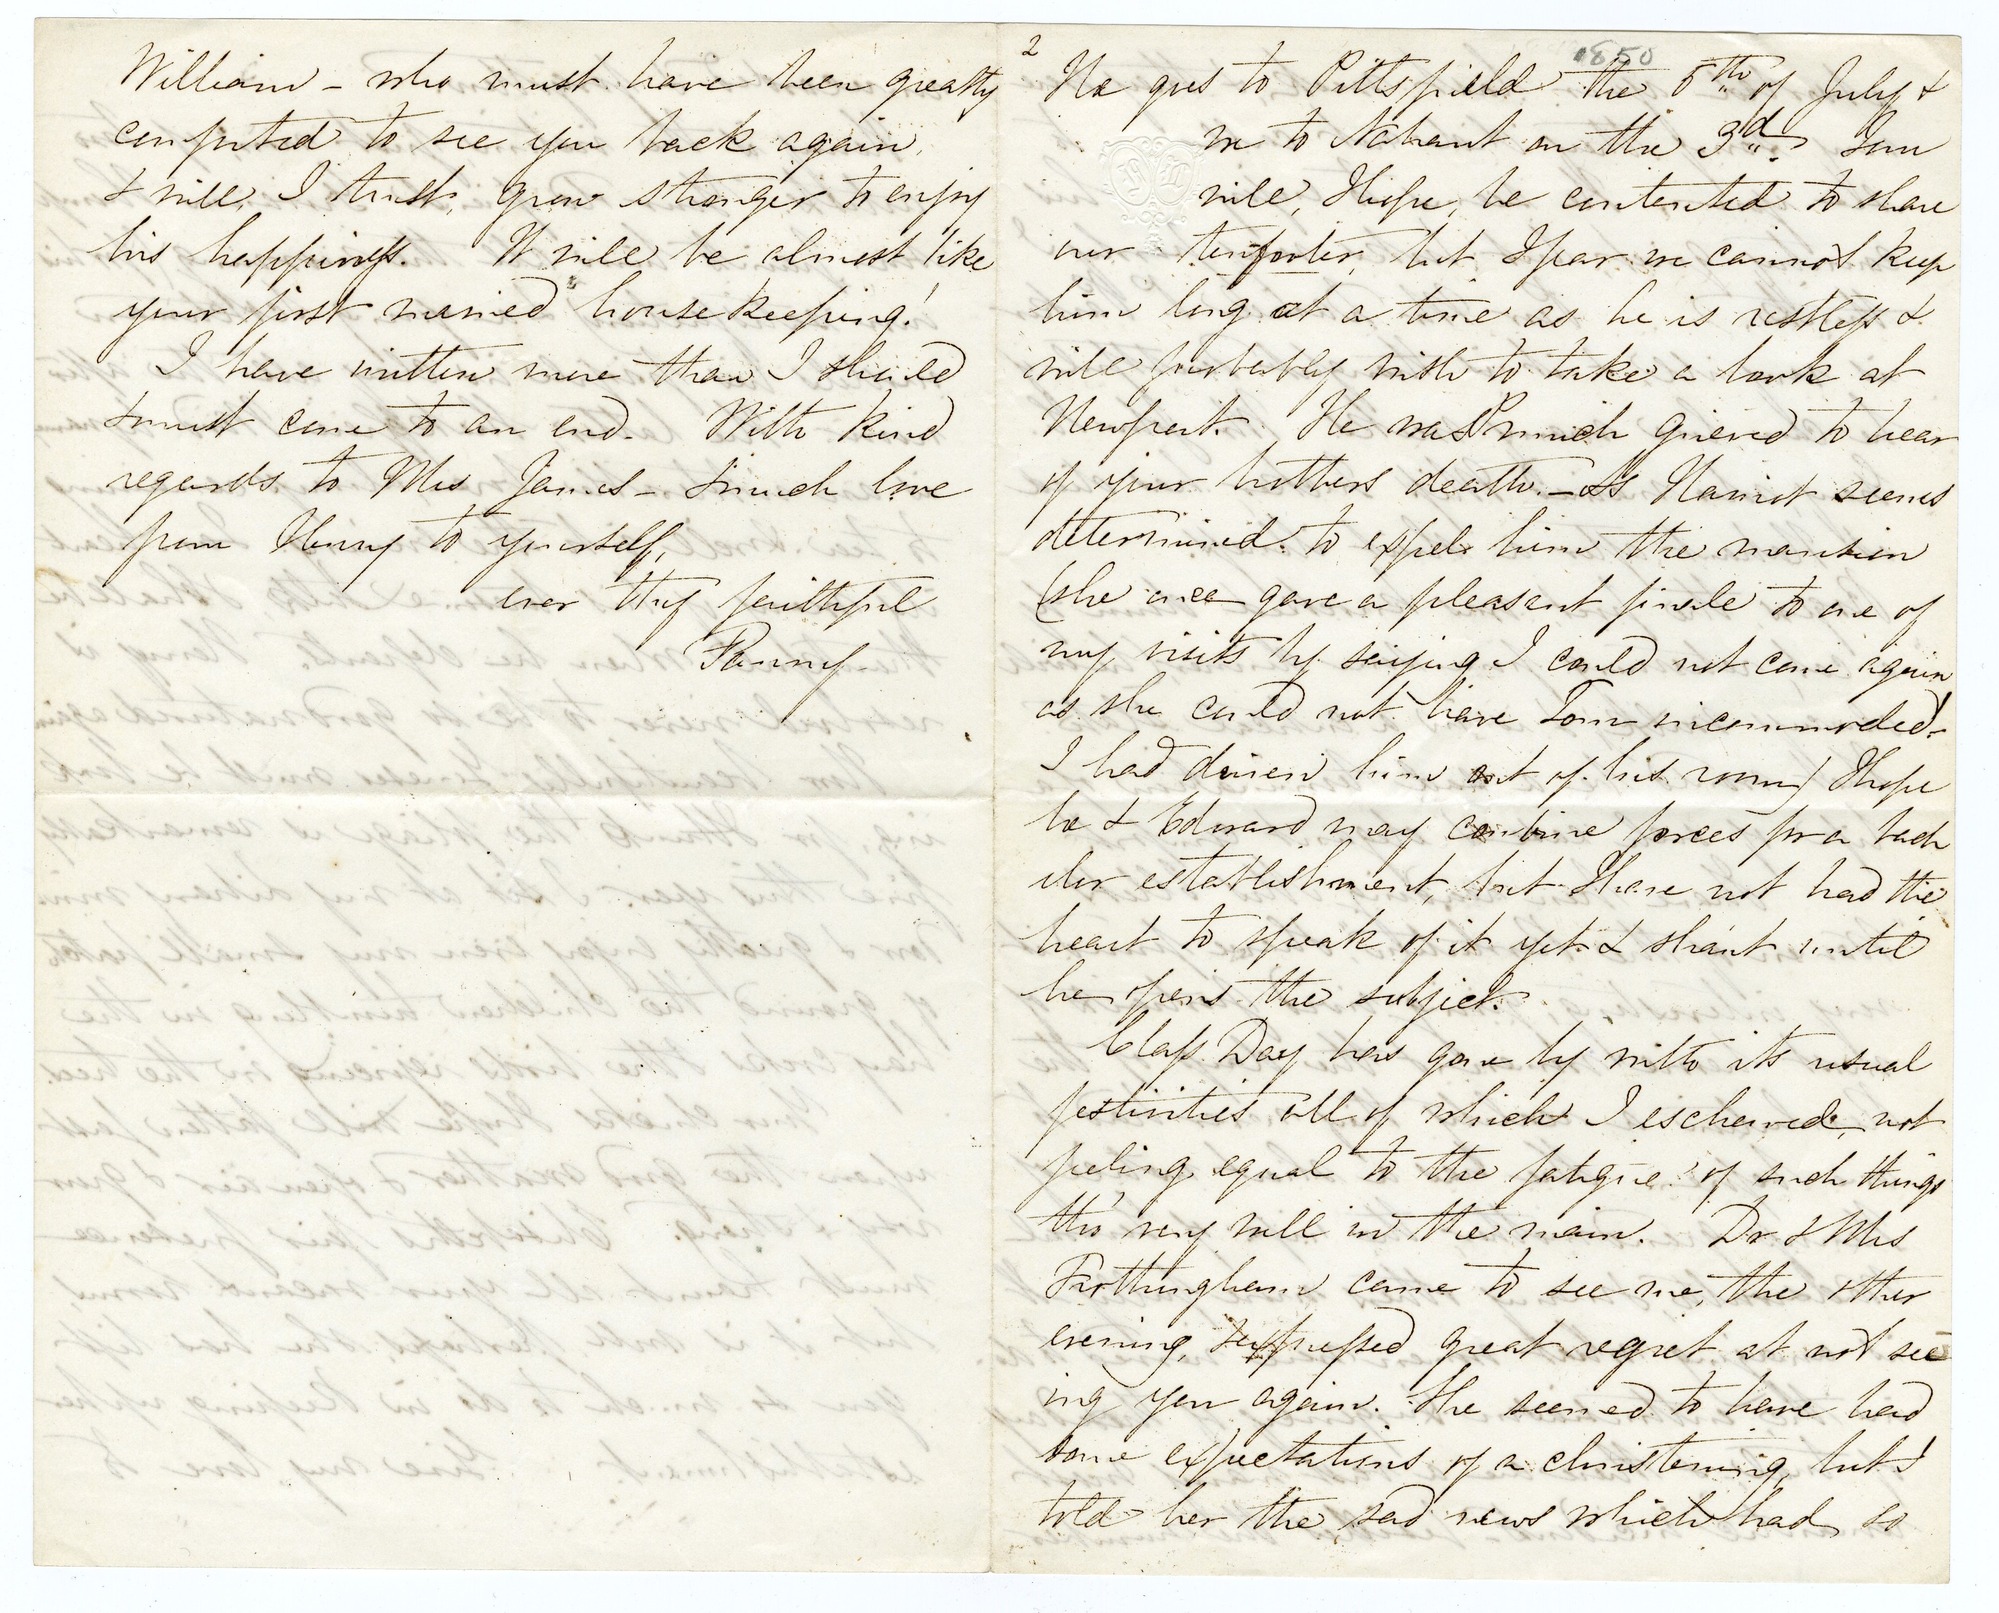 William - who must have been greatly
comforted to see you back again,
& will, I trust, grow stronger to enjoy
his happiness. It will be almost like
your first married housekeeping!
I have written more than I should
& must come to an end. With kind
regards to Mrs James - & much love
from Henry to yourself,
ever thy faithful
Fanny.
2
1850
He goes to Pittsfield the 5th of July &
we to Nahant on the 3d. Tom
will, I hope, be contented to share
our comforter, but I fear we cannot keep
him long at a time as he is restless &
will probably wish to take a look at
Newport. He was much grieved to hear
of your brothers death. - As Harriot seems
determined to expel him the mansion
(she once gave a pleasant finale to one of
my visits by saying I could not come again
as she could not have Tom incommoded -
I had driven him out of his room) I hope
he & Edward may combine forces for a bach
elor establishment, but I have not had the
heart to speak of it yet & shan't until
he opens the subject.
Class Day has gone by with its usual
festivities all of which I eschewed, not
feeling equal to the fatigue of such things
tho' very well in the main. Dr & Mrs
Frothingham came to see me, the other
evening, & expressed great regret at not see
ing you again. She seemed to have had
some expectations of a christening, but I
told her the sad news which had so